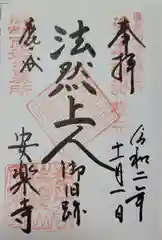 奉拝
令和二年
十一月一日
法然上人
御旧跡
鹿ヶ谷
安楽寺